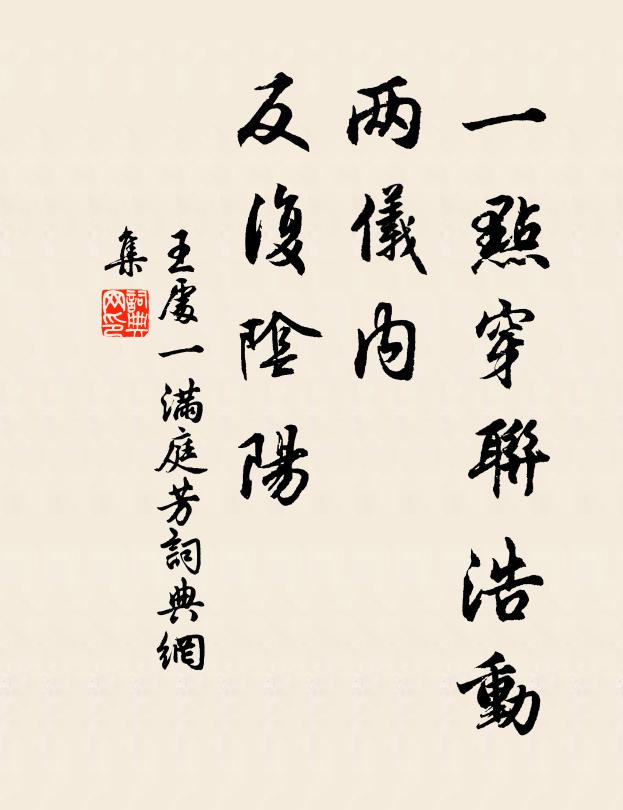 一點穿聯浩動
两儀内
反復陰陽
王處一滿庭芳詞典網
集
詞典
网印